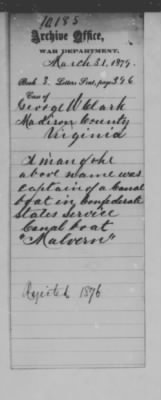 10185
Archive Office,
WAR DEPARTMENT,
March 31, 1879.
Book 3. Letters Sent, page 396
Case of
George W Clark
Madison County
Virginia
A man of the
above name was
captain of a Canal
boat in Confederate
States service
Canal boat
"Malvern"
Rejected 1876